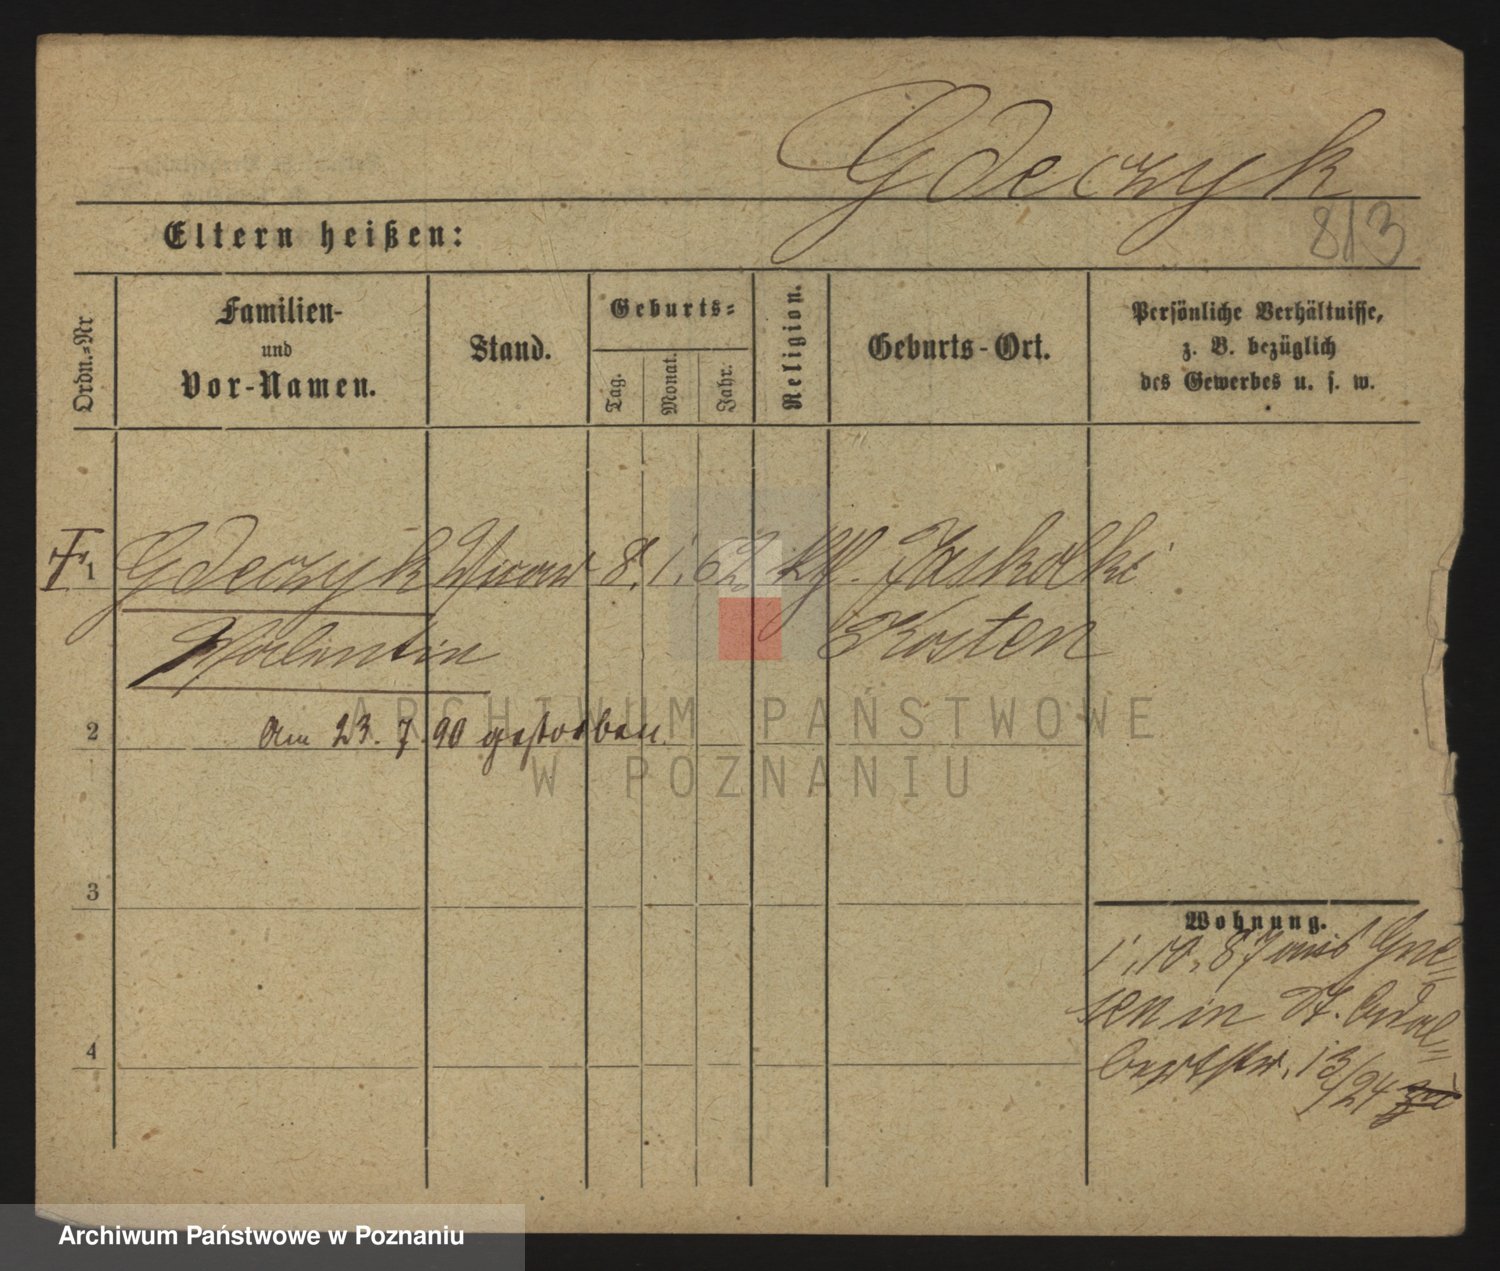 Gdeczyk
813
Eltern heißen:
Ordn.-Nr
Familien-
und
Vor-Namen.
Stand.
Geburts-
Tag.
Monat.
Jahr.
Religion.
Geburts-Ort.
Persönliche Verhältnisse,
z. B. bezüglich
des Gewerbes u. s. w.
1 Gdeczyk 8. 1. 62 Jaskolki
Valentin Kosten
2 Am 23. 7. 90 gestorben.
3
4
Wohnung.
1. 10. 87 aus Gne=
sen in St. Adal=
bertstr. 13/24
ARCHIWUM PAŃSTWOWE
W POZNANIU
Archiwum Państwowe w Poznaniu